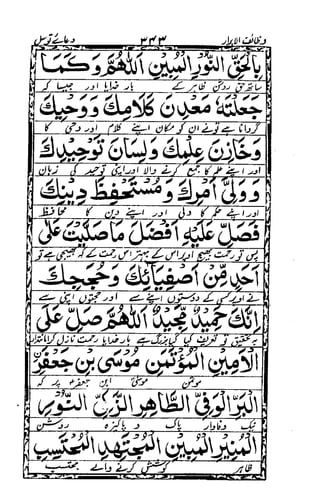 وظائف الابرار ۳۴۳ دعائے توسل
بِالْحَقِّ النُّوْرِ الْمُبِيْنِ اَللّٰهُمَّ وَكَمَا
ساتھ حق روشن ظاہر کے بار خدایا اور جیسا کہ
جَعَلْتَهٗ مَعْدِنَ كَلَامِكَ وَوَحْيِكَ
گردانا ہے تو نے ان کو مکان اپنے کلام اور وحی کا
وَخَازِنَ عِلْمِكَ وَلِسَانَ تَوْحِيْدِكَ
اور اپنے علم کا جمع کرنے والا اور اپنی توحید کی زبان
وَوَلِىَّ اَمْرِكَ وَمُسْتَحْفِظَ دِيْنِكَ
اور اپنے حکم کا ولی اور اپنے دین کا محافظ
فَصَلِّ عَلَيْهِ اَفْضَلَ مَا صَلَّيْتَ عَلٰى
پس تو رحمت بھیج اوپر اس کے بہتر اس رحمت کے کہ بھیجی ہے تو
اَحَدٍ مِّنْ اَصْفِيَائِكَ وَحُجَجِكَ
نے اوپر کسی کے دوستوں اپنے سے اور حجتوں اپنی سے
اِنَّكَ حَمِيْدٌ مَّجِيْدٌ اَللّٰهُمَّ صَلِّ عَلَى
بہ تحقیق تو تعریف کیا گیا بزرگ ہے بار خدایا رحمت نازل کر اوپر امانتدار
الْاَمِيْنِ الْمُؤْتَمَنِ مُوْسَى بْنِ جَعْفَرٍ
مؤتمن موسیٰ ابن جعفر پر کہ
الْبَرِّ الْوَفِيِّ الطَّاهِرِ الزَّكِيِّ النُّوْرِ
نیک وفادار پاک و پاکیزہ روشن
الْمُنِيْرِ الْمُبِيْنِ الْمُجْتَهِدِ الْمُحْتَسِبِ
ظاہر کوشش کرنے والے محتسب